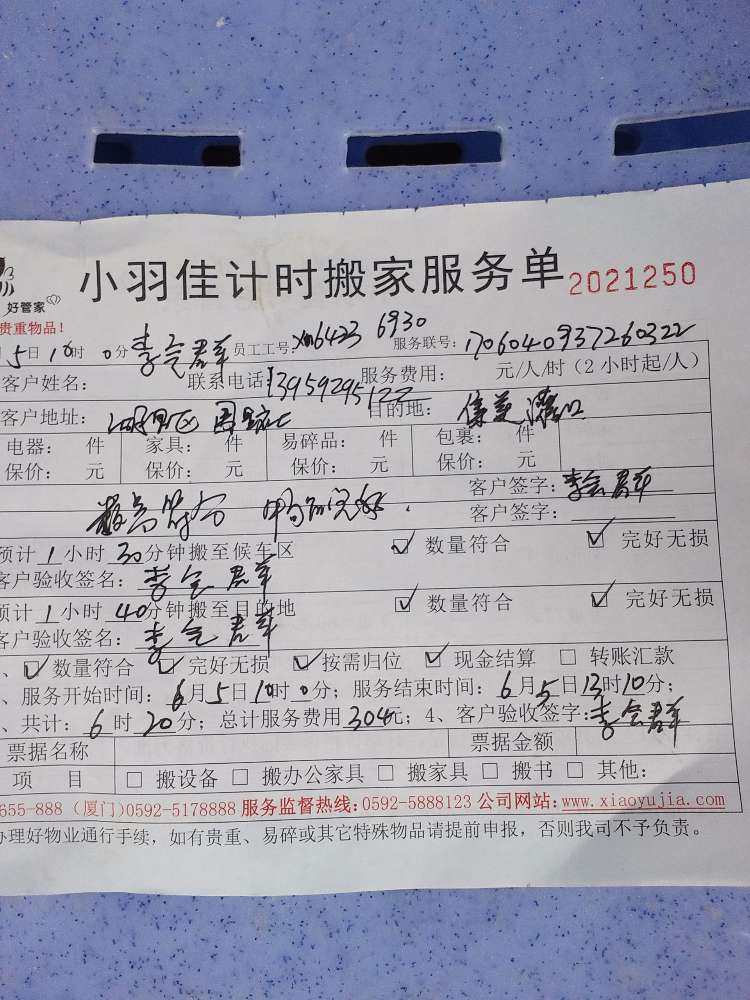 小羽佳计时搬家服务单 2021250
好管家
贵重物品！
5日10时0分 员工工号: 6423 6930 服务联号: 1706040937260322
客户姓名: 联系电话 13959295122 服务费用: 元/人/时（2小时起/人）
客户地址: 目的地:
电器: 件 家具: 件 易碎品: 件 包裹: 件
保价: 元 保价: 元 保价: 元 保价: 元
客户签字:
数量符合 客户签字:
预计1小时30分钟搬至候车区 ☑ 数量符合 ☑ 完好无损
客户验收签名:
预计1小时40分钟搬至目的地 ☑ 数量符合 ☑ 完好无损
客户验收签名:
、☑ 数量符合 ☑ 完好无损 ☑ 按需归位 ☑ 现金结算 □ 转账汇款
、服务开始时间: 6月5日10时0分; 服务结束时间: 6月5日13时10分;
、共计: 6时20分; 总计服务费用304元; 4、客户验收签字:
票据名称 票据金额
项 目 □ 搬设备 □ 搬办公家具 □ 搬家具 □ 搬书 □ 其他:
655-888（厦门）0592-5178888 服务监督热线:0592-5888123 公司网站:www.xiaoyujia.com
办理好物业通行手续，如有贵重、易碎或其它特殊物品请提前申报，否则我司不予负责。